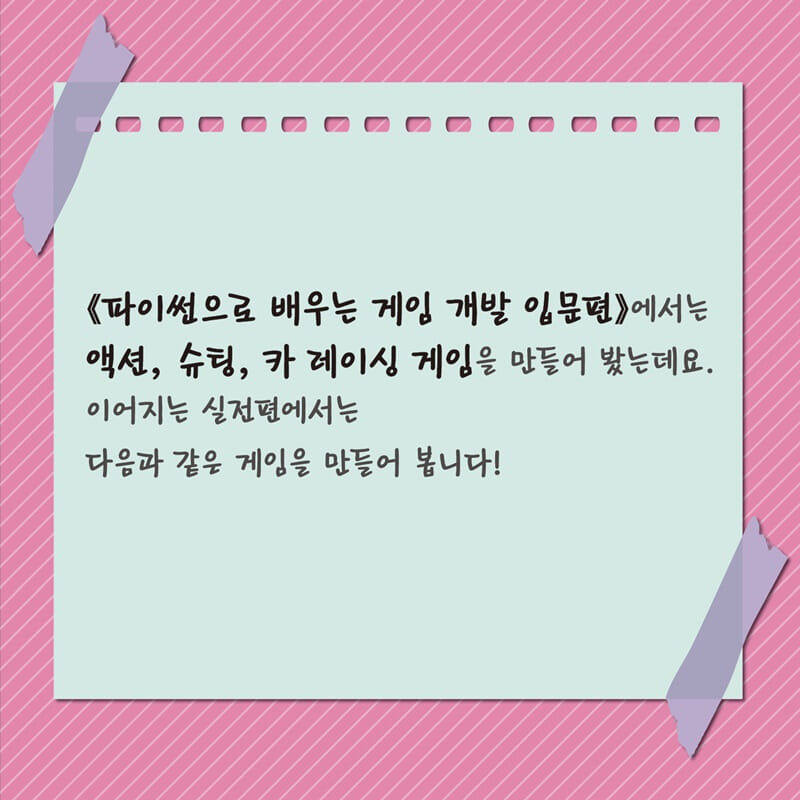 《파이썬으로 배우는 게임 개발 입문편》에서는
액션, 슈팅, 카 레이싱 게임을 만들어 봤는데요.
이어지는 실전편에서는
다음과 같은 게임을 만들어 봅니다!